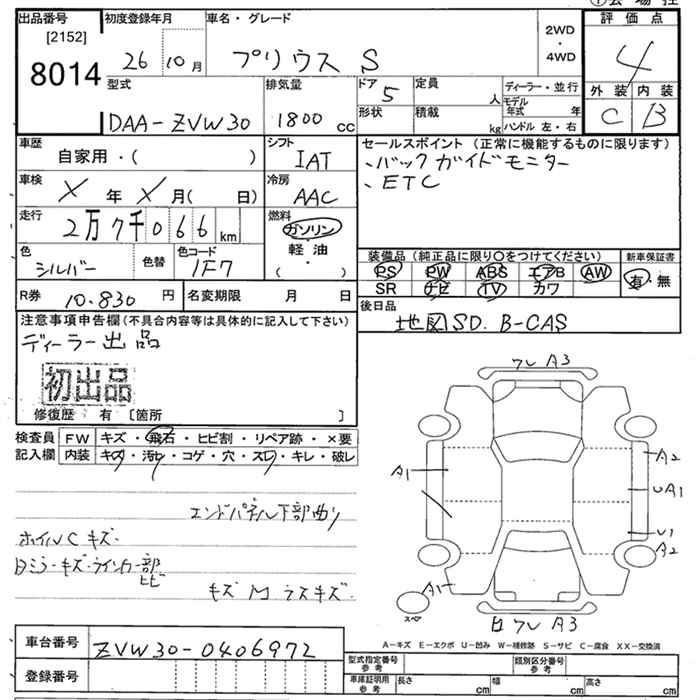 出品番号 初度登録年月 車名・グレード 評価点
[2152]
8014
26 10月 プリウス S 2WD・4WD 4
型式 排気量 ドア 定員 ディーラー・並行 外装 内装
DAA-ZVW30 1800 cc 5 人 モデル年式 年 C B
形状 積載 kg ハンドル 左・右
車歴 シフト セールスポイント (正常に機能するものに限ります)
自家用・( ) IAT
、バックガイドモニター
、ETC
車検 X 年 X 月( 日) 冷房 AAC
走行 2万7千066km 燃料 ガソリン 軽油 ( ・ )
色 シルバー 色替 色コード 1F7
装備品 (純正品に限り○をつけてください) 新車保証書
PS PW ABS エアB AW 有・無
SR ナビ TV カワ
R券 10.830 円 名変期限 月 日
後日品 地図SD. B-CAS
注意事項申告欄 (不具合内容等は具体的に記入して下さい)
ディーラー出品
初出品
修復歴 有 〔箇所 〕
検査員記入欄 FW キズ・飛石・ヒビ割・リペア跡・×要
内装 キズ・汚レ・コゲ・穴・スレ・キレ・破レ
エンドパネル下部曲り
ホイルC キズ・
日ミラーキズ・ウインカー部ヒビ
キズ M ラスキズ
ワレ A3
A1
A2
UA1
U1
A2
A1
スペア
ワレ A3
A-キズ E-エクボ U-凹み W-補修跡 S-サビ C-腐食 XX-交換済
車台番号 ZVW30-0406972
登録番号
型式指定番号 参考 類別区分番号 参考
車庫証明用 参考 長さ cm 幅 cm 高さ cm